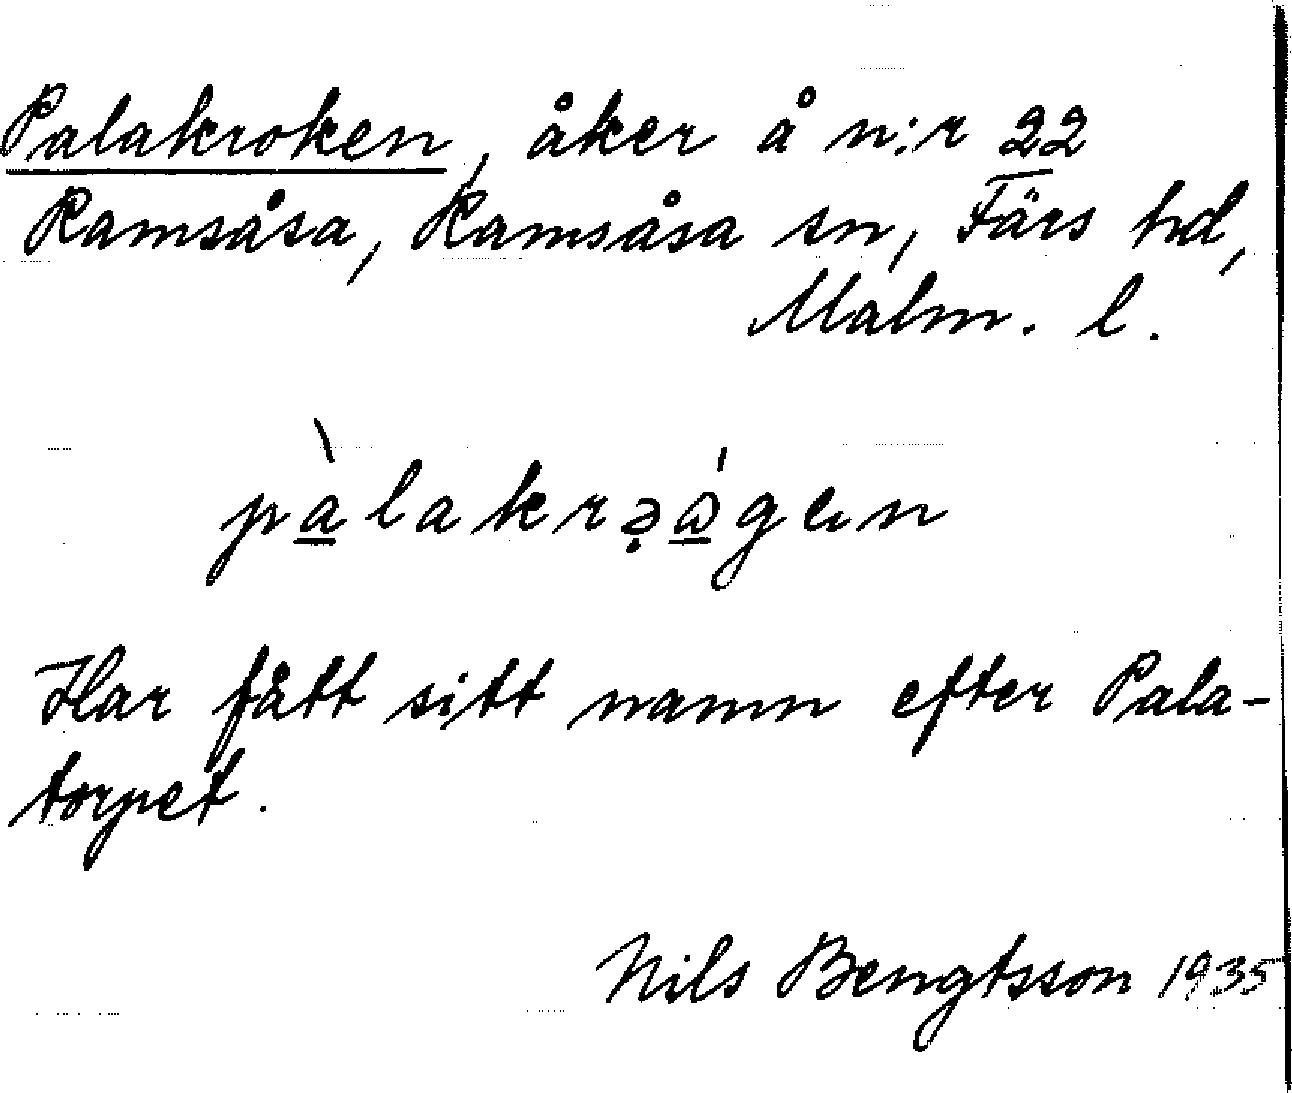 Palakroken, åker å n:r 22
Ramsåsa, Ramsåsa sn, Färs hd,
Malm. l.
pàlakrə̣ágen
Har fått sitt namn efter Pala-
torpet.
Nils Bengtsson 1935